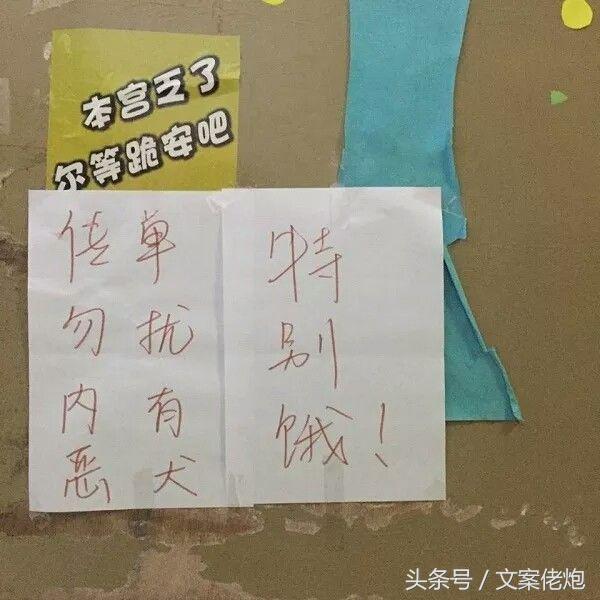 本宫乏了
尔等跪安吧
传单
勿扰
内有
恶犬
特
别
饿!
头条号 / 文案佬炮